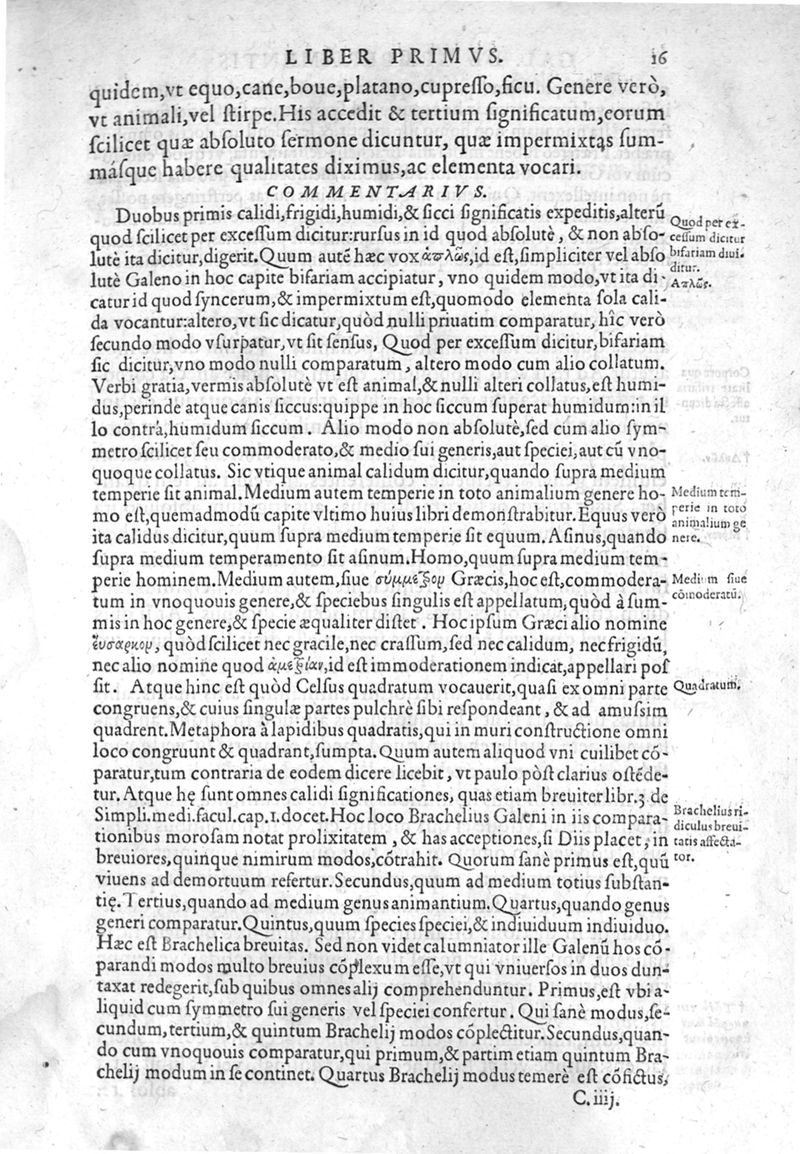 LIBER PRIMVS. 16
quidem,vt equo,cane,boue,platano,cupreſſo,ficu. Genere verò,
vt animali,vel ſtirpe.His accedit & tertium ſignificatum,eorum
ſcilicet quæ abſoluto ſermone dicuntur, quæ impermixtąs ſum-
máſque habere qualitates diximus,ac elementa vocari.
COMMENTARIVS.
Duobus primis calidi,frigidi,humidi,& ſicci ſignificatis expeditis,alterū
quod ſcilicet per exceſſum dicitur:rurſus in id quod abſolutè, & non abſo-
lutè ita dicitur,digerit.Quum autē hæc vox ἁπλῶς,id eſt,ſimpliciter vel abſo
lutè Galeno in hoc capite bifariam accipiatur, vno quidem modo,vt ita di-
catur id quod ſyncerum,& impermixtum eſt,quomodo elementa ſola cali-
da vocantur:altero,vt ſic dicatur,quòd nulli priuatim comparatur, hîc verò
ſecundo modo vſurpatur,vt ſit ſenſus, Quod per exceſſum dicitur,bifariam
ſic dicitur,vno modo nulli comparatum, altero modo cum alio collatum.
Verbi gratia,vermis abſolutè vt eſt animal,& nulli alteri collatus,eſt humi-
dus,perinde atque canis ſiccus:quippe in hoc ſiccum ſuperat humidum:in il
lo contrà,humidum ſiccum. Alio modo non abſolutè,ſed cum alio ſym-
metro ſcilicet ſeu commoderato,& medio ſui generis,aut ſpeciei,aut cū vno-
quoque collatus. Sic vtique animal calidum dicitur,quando ſupra medium
temperie ſit animal.Medium autem temperie in toto animalium genere ho-
mo eſt,quemadmodū capite vltimo huius libri demonſtrabitur.Equus verò
ita calidus dicitur,quum ſupra medium temperie ſit equum. Aſinus,quando
ſupra medium temperamento ſit aſinum.Homo,quum ſupra medium tem-
perie hominem.Medium autem,ſiue σύμμετρον Græcis,hoc eſt,commodera-
tum in vnoquouis genere,& ſpeciebus ſingulis eſt appellatum,quòd à ſum-
mis in hoc genere,& ſpecie æqualiter diſtet. Hoc ipſum Græci alio nomine
εὔσαρκον, quòd ſcilicet nec gracile,nec craſſum,ſed nec calidum, nec frigidū,
nec alio nomine quod ἀμετρίαν,id eſt immoderationem indicat,appellari poſ
ſit. Atque hinc eſt quòd Celſus quadratum vocauerit,quaſi ex omni parte
congruens,& cuius ſingulæ partes pulchrè ſibi reſpondeant, & ad amuſſim
quadrent.Metaphora à lapidibus quadratis,qui in muri conſtructione omni
loco congruunt & quadrant,ſumpta.Quum autem aliquod vni cuilibet cō-
paratur,tum contraria de eodem dicere licebit, vt paulo pòſt clarius oſtēde-
tur.Atque hę ſunt omnes calidi ſignificationes, quas etiam breuiter libr.3. de
Simpli.medi.facul.cap.1.docet.Hoc loco Brachelius Galeni in iis compara-
tionibus moroſam notat prolixitatem, & has acceptiones,ſi Diis placet, in
breuiores,quinque nimirum modos,cōtrahit. Quorum ſanè primus eſt,quū
viuens ad demortuum refertur.Secundus,quum ad medium totius ſubſtan-
tię.Tertius,quando ad medium genus animantium.Quartus,quando genus
generi comparatur.Quintus,quum ſpecies ſpeciei,& indiuiduum indiuiduo.
Hæc eſt Brachelica breuitas. Sed non videt calumniator ille Galenū hos cō-
parandi modos multo breuius cōplexum eſſe,vt qui vniuerſos in duos dun-
taxat redegerit,ſub quibus omnes alij comprehenduntur. Primus,eſt vbi a-
liquid cum ſymmetro ſui generis vel ſpeciei confertur. Qui ſanè modus,ſe-
cundum,tertium,& quintum Brachelij modos cōplectitur.Secundus,quan-
do cum vnoquouis comparatur,qui primum,& partim etiam quintum Bra-
chelij modum in ſe continet. Quartus Brachelij modus temerè eſt cōfictus,
C.iiij.
Quod per ex-
ceſſum dicitur
bifariam diui-
ditur.
Απλῶς.
Medium tem-
perie in toto
animalium ge
nere.
Medium ſiue
cōmoderatū.
Quadratum.
Brachelius ri-
diculus breui-
tatis affecta-
tor.